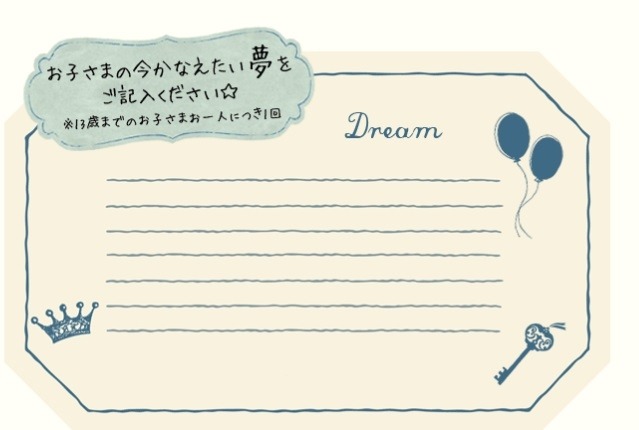 お子さまの今かなえたい夢を
ご記入ください☆
※13歳までのお子さまお一人につき1回
Dream